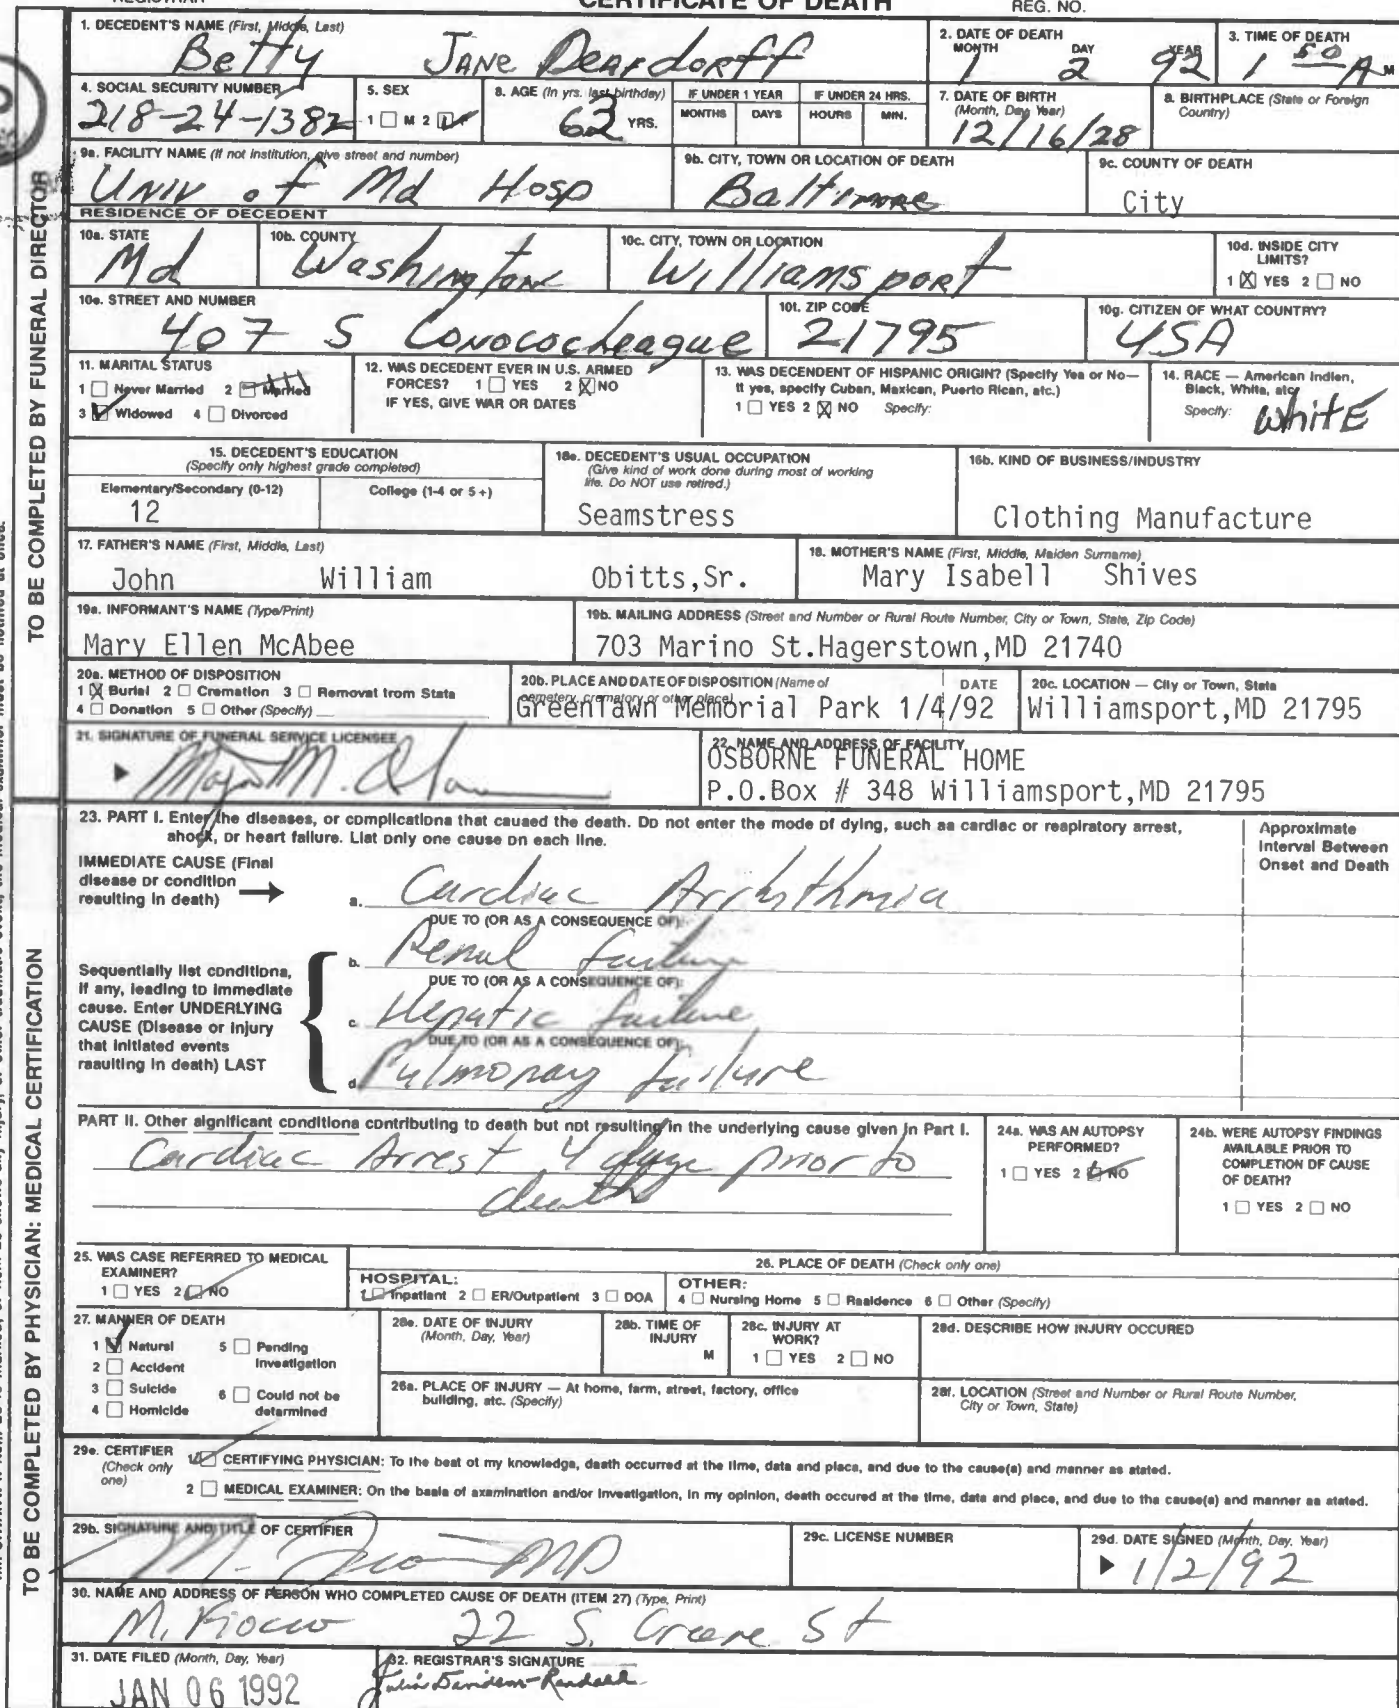 CERTIFICATE OF DEATH
REG. NO.
TO BE COMPLETED BY FUNERAL DIRECTOR
1. DECEDENT'S NAME (First, Middle, Last)
Betty Jane Deardorff
2. DATE OF DEATH
MONTH DAY YEAR
1 2 92
3. TIME OF DEATH
1 50 A M
4. SOCIAL SECURITY NUMBER
218-24-1382
5. SEX
1 M 2 F
6. AGE (In yrs. last birthday)
63 YRS.
IF UNDER 1 YEAR
MONTHS DAYS
IF UNDER 24 HRS.
HOURS MIN.
7. DATE OF BIRTH
(Month, Day, Year)
12/16/28
8. BIRTHPLACE (State or Foreign
Country)
9a. FACILITY NAME (If not institution, give street and number)
Univ of Md Hosp
9b. CITY, TOWN OR LOCATION OF DEATH
Baltimore
9c. COUNTY OF DEATH
City
RESIDENCE OF DECEDENT
10a. STATE
Md
10b. COUNTY
Washington
10c. CITY, TOWN OR LOCATION
Williamsport
10d. INSIDE CITY
LIMITS?
1 X YES 2 NO
10e. STREET AND NUMBER
407 S Conococheague
10f. ZIP CODE
21795
10g. CITIZEN OF WHAT COUNTRY?
USA
11. MARITAL STATUS
1 Never Married 2 Married
3 Widowed 4 Divorced
12. WAS DECEDENT EVER IN U.S. ARMED
FORCES? 1 YES 2 X NO
IF YES, GIVE WAR OR DATES
13. WAS DECENDENT OF HISPANIC ORIGIN? (Specify Yes or No—
It yes, specify Cuban, Maxican, Puerto Rican, atc.)
1 YES 2 X NO Specify:
14. RACE — American Indien,
Black, White, atc
Specify: White
15. DECEDENT'S EDUCATION
(Specify only highest grade completed)
Elementary/Secondary (0-12)
12
College (1-4 or 5+)
16a. DECEDENT'S USUAL OCCUPATION
(Give kind of work done during most of working
life. Do NOT use retired.)
Seamstress
16b. KIND OF BUSINESS/INDUSTRY
Clothing Manufacture
17. FATHER'S NAME (First, Middle, Last)
John William Obitts,Sr.
18. MOTHER'S NAME (First, Middle, Maiden Surname)
Mary Isabell Shives
19a. INFORMANT'S NAME (Type/Print)
Mary Ellen McAbee
19b. MAILING ADDRESS (Street and Number or Rural Route Number, City or Town, State, Zip Code)
703 Marino St.Hagerstown,MD 21740
20a. METHOD OF DISPOSITION
1 X Burial 2 Cremation 3 Removal from Stata
4 Donation 5 Other (Specify)
20b. PLACE AND DATE OF DISPOSITION (Name of
cemetery, crematory or other place)
DATE
Greenlawn Memorial Park 1/4/92
20c. LOCATION — City or Town, Stata
Williamsport,MD 21795
21. SIGNATURE OF FUNERAL SERVICE LICENSEE
22. NAME AND ADDRESS OF FACILITY
OSBORNE FUNERAL HOME
P.O.Box # 348 Williamsport,MD 21795
TO BE COMPLETED BY PHYSICIAN: MEDICAL CERTIFICATION
23. PART I. Enter the diseases, or complications that caused the death. Do not enter the mode of dying, such as cardiac or respiratory arrest,
shock, or heart failure. List only one cause on each line.
Approximate
Interval Between
Onset and Death
IMMEDIATE CAUSE (Final
disease or condition
resulting in death) →
a. Cardiac Arrhythmia
DUE TO (OR AS A CONSEQUENCE OF):
Sequentially list conditions,
if any, leading to immediate
cause. Enter UNDERLYING
CAUSE (Disease or injury
that initiated events
resulting in death) LAST
b. Renal failure
DUE TO (OR AS A CONSEQUENCE OF):
c. Hepatic failure
DUE TO (OR AS A CONSEQUENCE OF):
d. Pulmonary failure
PART II. Other significant conditions contributing to death but not resulting in the underlying cause given in Part I.
Cardiac Arrest 4 days prior to
death
24a. WAS AN AUTOPSY
PERFORMED?
1 YES 2 NO
24b. WERE AUTOPSY FINDINGS
AVAILABLE PRIOR TO
COMPLETION OF CAUSE
OF DEATH?
1 YES 2 NO
25. WAS CASE REFERRED TO MEDICAL
EXAMINER?
1 YES 2 NO
26. PLACE OF DEATH (Check only one)
HOSPITAL:
1 Inpatient 2 ER/Outpatient 3 DOA
OTHER:
4 Nursing Home 5 Residence 6 Other (Specify)
27. MANNER OF DEATH
1 Natural 5 Pending
Investigation
2 Accident
3 Suicide 6 Could not be
determined
4 Homicide
28a. DATE OF INJURY
(Month, Day, Year)
28b. TIME OF
INJURY
M
28c. INJURY AT
WORK?
1 YES 2 NO
28d. DESCRIBE HOW INJURY OCCURED
28a. PLACE OF INJURY — At home, farm, street, factory, office
building, atc. (Specify)
28f. LOCATION (Street and Number or Rural Route Number,
City or Town, State)
29a. CERTIFIER
(Check only
one)
1 CERTIFYING PHYSICIAN: To the best of my knowledge, death occurred at the time, data and place, and due to the cause(s) and manner as stated.
2 MEDICAL EXAMINER: On the basis of examination and/or investigation, in my opinion, death occured at the time, data and place, and due to the cause(s) and manner as stated.
29b. SIGNATURE AND TITLE OF CERTIFIER
MD
29c. LICENSE NUMBER
29d. DATE SIGNED (Month, Day, Year)
1/2/92
30. NAME AND ADDRESS OF PERSON WHO COMPLETED CAUSE OF DEATH (ITEM 27) (Type, Print)
M. 22 S. Greene St
31. DATE FILED (Month, Day, Year)
JAN 06 1992
32. REGISTRAR'S SIGNATURE
Julia Davidson-Randall